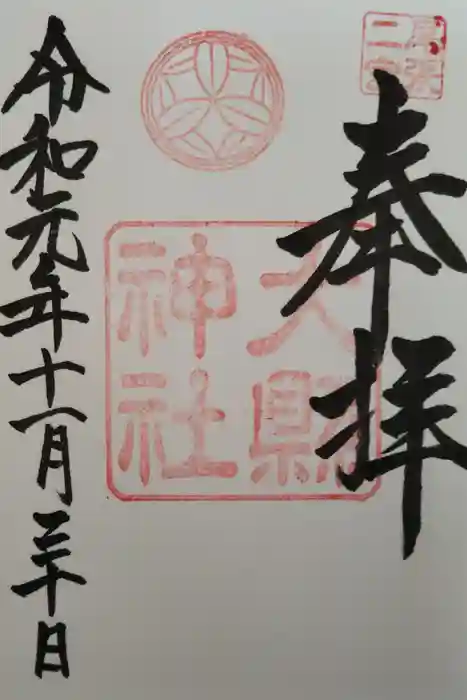 奉拝
尾張
二宮
大縣
神社
令和元年十一月三十日